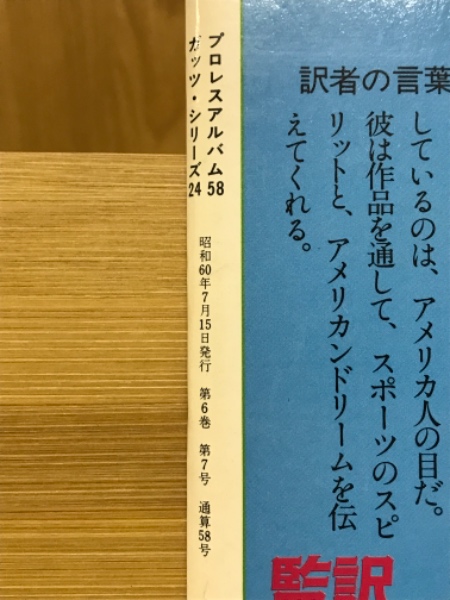 プロレスアルバム58
ガッツ・シリーズ24
昭和60年7月15日発行 第6巻 第7号 通算58号
訳者の言葉
しているのは、アメリカ人の目だ。
彼は作品を通して、スポーツのスピ
リットと、アメリカンドリームを伝
えてくれる。
監訳